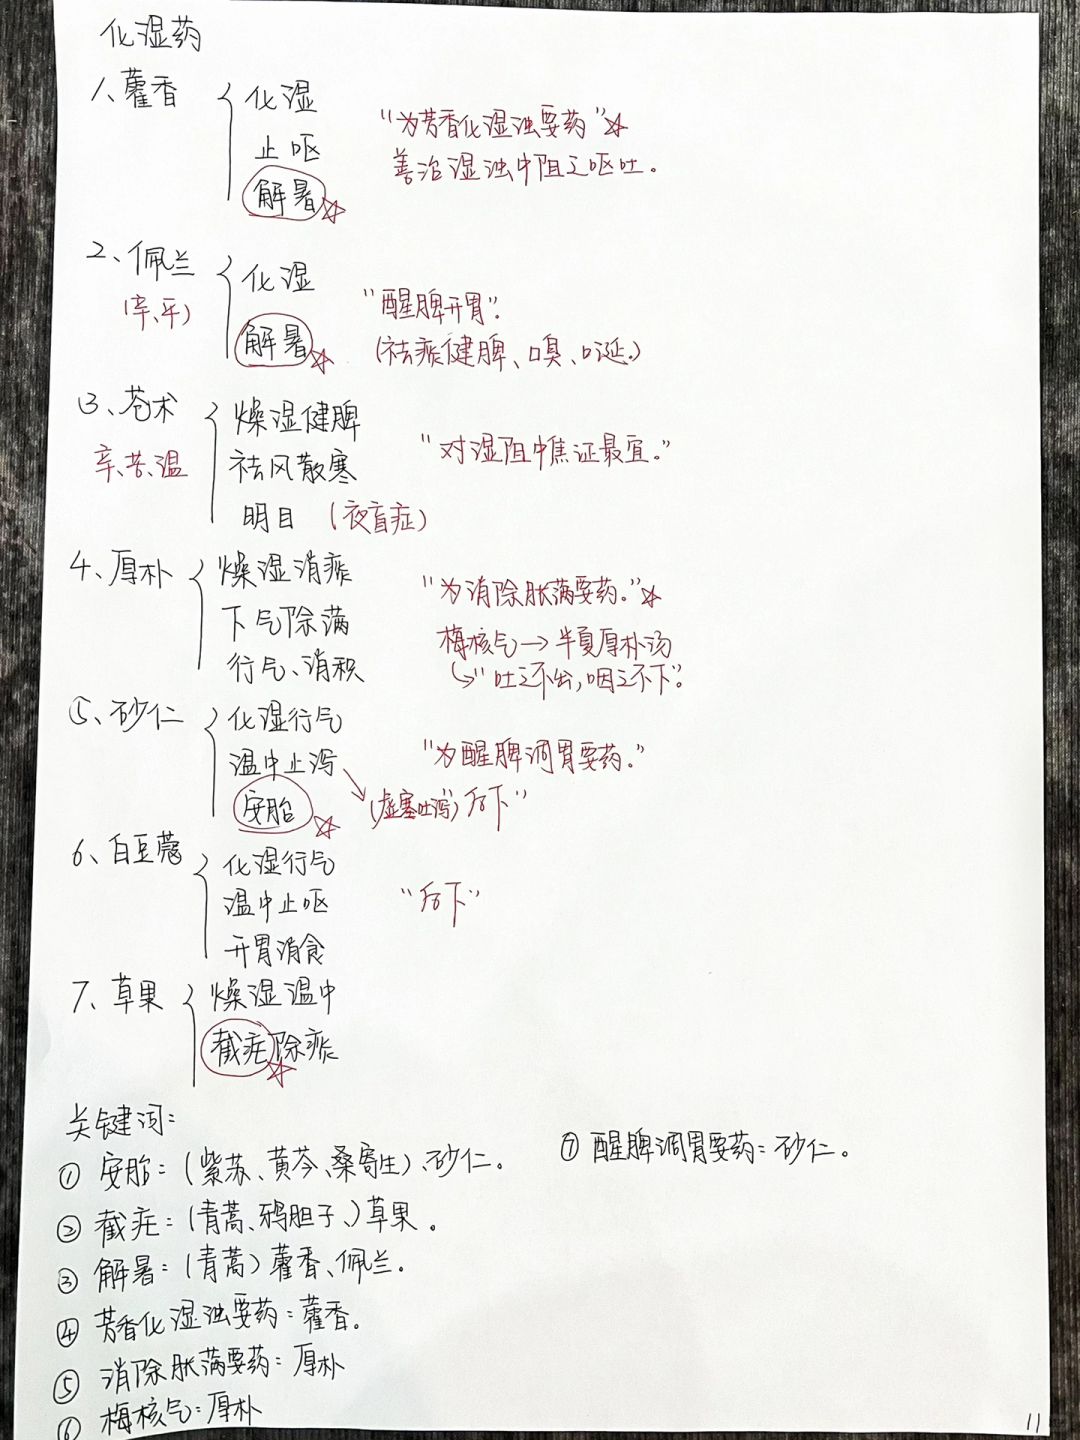 化湿药
1、藿香 { 化湿
止呕
解暑☆
"为芳香化湿浊要药"☆
善治湿浊中阻之呕吐。
2、佩兰 { 化湿
(辛、平)
解暑☆
"醒脾开胃".
(祛痰健脾、口臭、口涎。)
3、苍术 { 燥湿健脾
辛、苦、温
祛风散寒
明目 (夜盲症)
"对湿阻中焦证最宜。"
4、厚朴 { 燥湿消痰
下气除满
行气、消积
"为消除胀满要药。"☆
梅核气→半夏厚朴汤
↳"吐之不出,咽之不下".
5、砂仁 { 化湿行气
温中止泻
安胎☆
"为醒脾调胃要药。"
(虚寒吐泻) "后下"
6、白豆蔻 { 化湿行气
温中止呕
开胃消食
"后下"
7、草果 { 燥湿温中
截疟除痰☆
关键词:
① 安胎:(紫苏、黄芩、桑寄生)、砂仁。
② 截疟:(青蒿、鸦胆子、)草果。
③ 解暑:(青蒿)藿香、佩兰.
④ 芳香化湿浊要药:藿香.
⑤ 消除胀满要药:厚朴
⑥ 梅核气:厚朴
⑦ 醒脾调胃要药:砂仁。
11